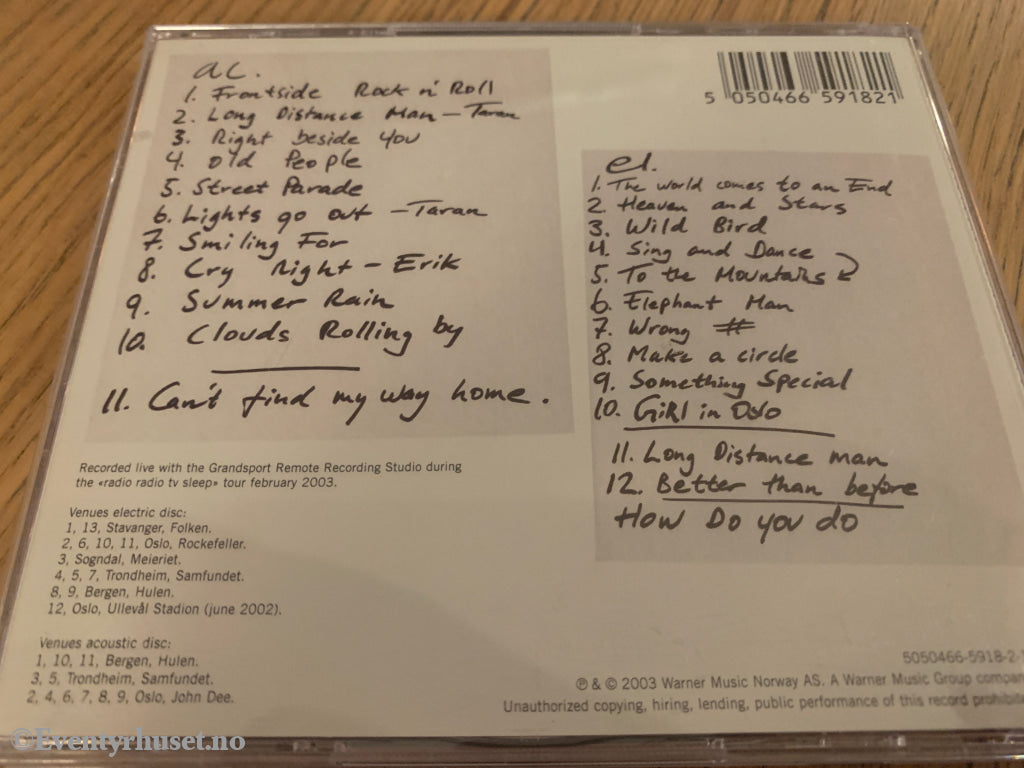 ac.
1. Frontside Rock n' Roll
2. Long Distance Man - Taran
3. Right beside you
4. Old People
5. Street Parade
6. Lights go out - Taran
7. Smiling For
8. Cry Right - Erik
9. Summer Rain
10. Clouds Rolling by
11. Can't find my way home.
5 050466 591821
el.
1. The world comes to an End
2. Heaven and Stars
3. Wild Bird
4. Sing and Dance
5. To the Mountains
6. Elephant Man
7. Wrong #
8. Make a circle
9. Something Special
10. Girl in Oslo
11. Long Distance man
12. Better than before
How Do you do
Recorded live with the Grandsport Remote Recording Studio during
the «radio radio tv sleep» tour february 2003.
Venues electric disc:
1, 13, Stavanger, Folken.
2, 6, 10, 11, Oslo, Rockefeller.
3, Sogndal, Meieriet.
4, 5, 7, Trondheim, Samfundet.
8, 9, Bergen, Hulen.
12, Oslo, Ullevål Stadion (june 2002).
Venues acoustic disc:
1, 10, 11, Bergen, Hulen.
3, 5, Trondheim, Samfundet.
2, 4, 6, 7, 8, 9, Oslo, John Dee.
5050466-5918-2-
℗ & © 2003 Warner Music Norway AS. A Warner Music Group
Unauthorized copying, hiring, lending, public performance of this record
©Eventyrhuset.no